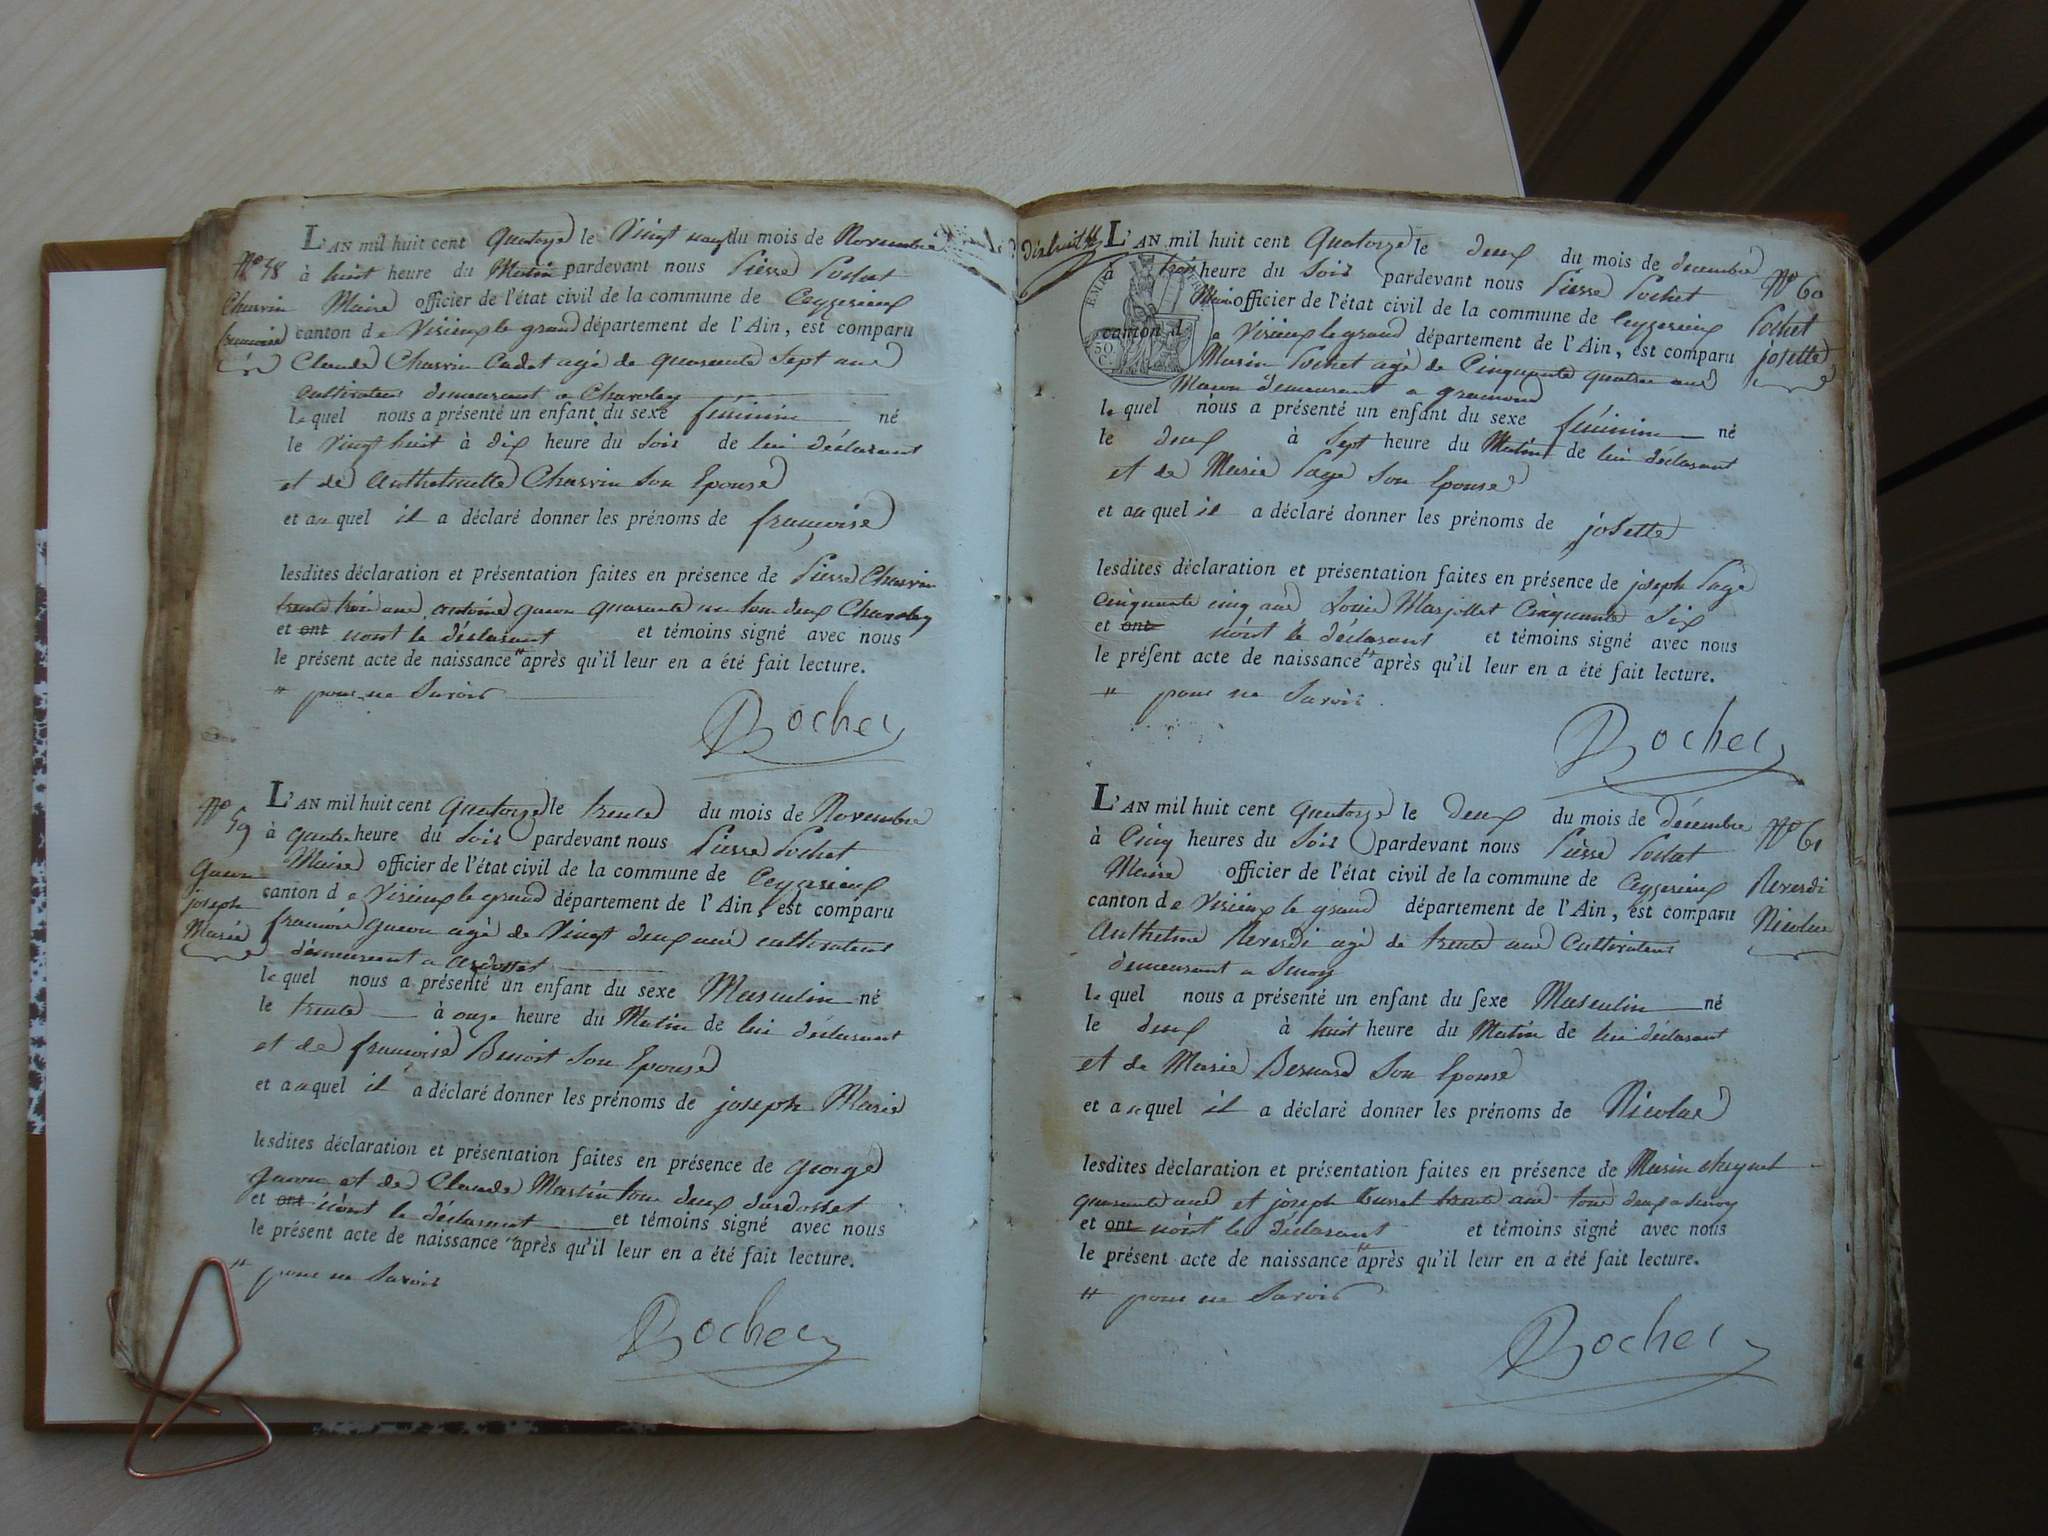 L'AN mil huit cent quatorze le Vingt neuf du mois de Novembre
N° 58
à huit heure du Matin pardevant nous Pierre Pochet
Charvin
Maire officier de l'état civil de la commune de Ceyzerieux
francoise
canton de Virieux le grand département de l'Ain, est comparu
Claude Charvin Cadet agé de quarante Sept ans
cultivateur demeurant a Charoley
Le quel nous a présenté un enfant du sexe féminin né
le Vingt huit à dix heure du Soir de lui déclarant
et de Anthelmette Charvin Son Epouse
et au quel il a déclaré donner les prénoms de francoise
lesdites déclaration et présentation faites en présence de Pierre Charvin
trente trois ans antoine gueon quarante un tous deux Charoley
et ont n'ont le déclarant et témoins signé avec nous
le présent acte de naissance " après qu'il leur en a été fait lecture.
" pour ne Savoir
Pochet
N° 59
L'AN mil huit cent quatorze le trente du mois de Novembre
à quatre heure du Soir pardevant nous Pierre Pochet
Maire officier de l'état civil de la commune de Ceyzerieux
gueon
joseph
Marie
canton de Virieux le grand département de l'Ain, est comparu
francois gueon agé de Vingt deux ans cultivateur
demeurant a ardosset
Le quel nous a présenté un enfant du sexe Masculin né
le trente à onze heure du Matin de lui déclarant
et de francoise Benoit Son Epouse
et au quel il a déclaré donner les prénoms de joseph Marie
lesdites déclaration et présentation faites en présence de george
gueon et de Claude Martin tous deux dardosset
et ont n'ont le déclarant et témoins signé avec nous
le présent acte de naissance " après qu'il leur en a été fait lecture.
" pour ne Savoir
Pochet
dixhuit
L'AN mil huit cent quatorze le deux du mois de decembre
à trois heure du Soir pardevant nous Pierre Pochet
N° 60
Maire officier de l'état civil de la commune de Ceyzerieux
Pochet
josette
canton de Virieux le grand département de l'Ain, est comparu
50 C.
Marin Pochet agé de Cinquante quatre ans
Macon demeurant a gramond
le quel nous a présenté un enfant du sexe féminin né
le deux à Sept heure du Matin de lui déclarant
et de Marie Page Son Epouse
et au quel il a déclaré donner les prénoms de josette
lesdites déclaration et présentation faites en présence de joseph Page
Cinquante cinq ans Louis Marjollet Cinquante Six
et ont n'ont le déclarant et témoins signé avec nous
le présent acte de naissance " après qu'il leur en a été fait lecture.
" pour ne Savoir
Pochet
L'AN mil huit cent quatorze le deux du mois de décembre
N° 61
à Cinq heures du Soir pardevant nous Pierre Pochet
Maire officier de l'état civil de la commune de Ceyzerieux
Reverdi
Nicolas
canton de Virieux le grand département de l'Ain, est comparu
Anthelme Reverdi agé de trente ans Cultivateur
demeurant a
le quel nous a présenté un enfant du sexe Masculin né
le deux à huit heure du Matin de lui déclarant
et de Marie Bernard Son Epouse
et au quel il a déclaré donner les prénoms de Nicolas
lesdites déclaration et présentation faites en présence de Marin
quarante ans et joseph trente ans tous deux a
et ont n'ont le déclarant et témoins signé avec nous
le présent acte de naissance " après qu'il leur en a été fait lecture.
" pour ne Savoir
Pochet